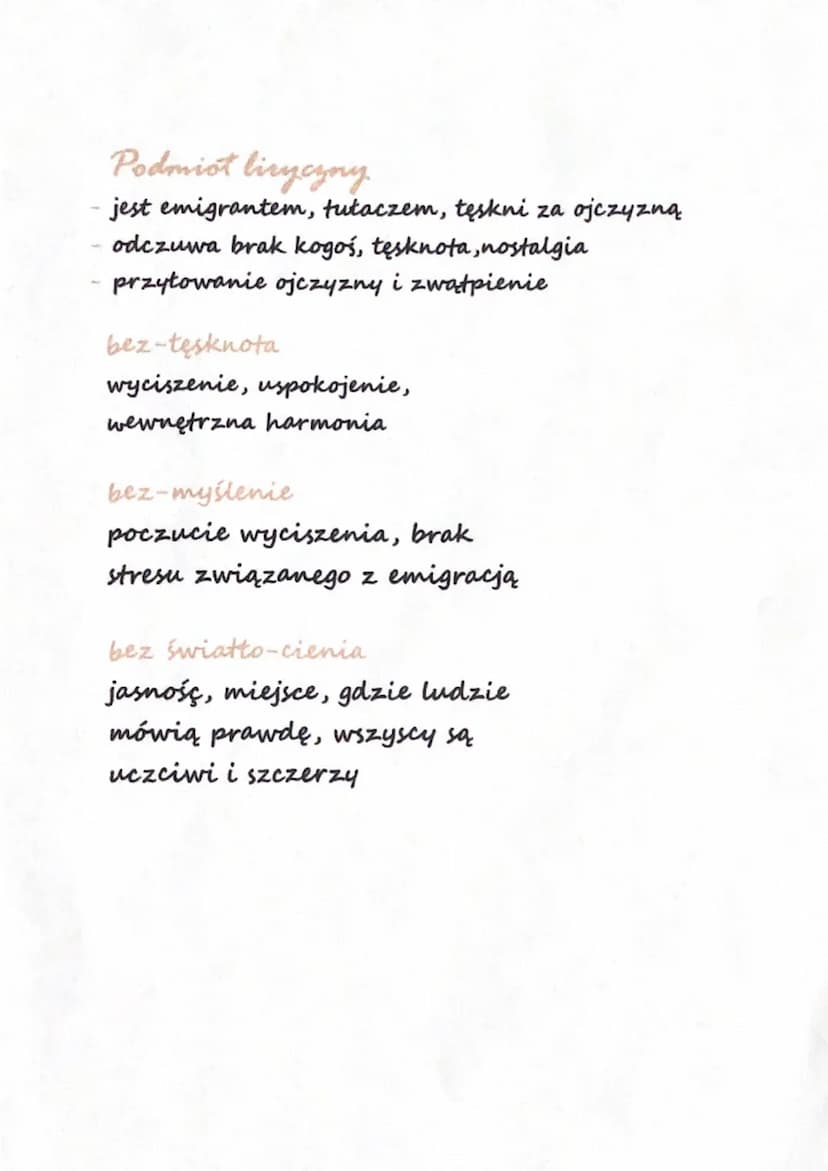 Podmiot liryczny
- jest emigrantem, tułaczem, tęskni za ojczyzną
- odczuwa brak kogoś, tęsknota, nostalgia
- przytowanie ojczyzny i zwątpienie
bez-tęsknota
wyciszenie, uspokojenie,
wewnętrzna harmonia
bez-myślenie
poczucie wyciszenia, brak
stresu związanego z emigracją
bez światło-cienia
jasnośç, miejsce, gdzie ludzie
mówią prawdę, wszyscy są
uczciwi i szczerzy